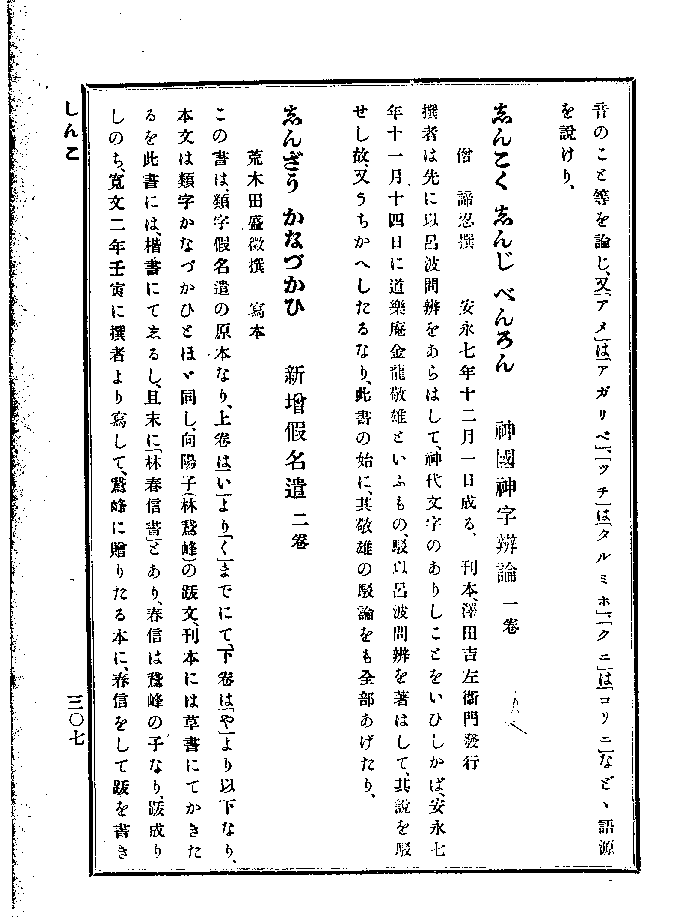 音のこと等を論じ、又「アメ」は「アガリベ」、「ツチ」は「タルミホ」、「クニ」は「コリニ」など、語源
を說けり、
志んこく志んじべんろん 神國神字辨論 一卷
僧 諦忍撰 安永七年十二月一日成る、 刊本、澤田吉左衞門發行
撰者は先に以呂波問辨をあらはして、神代文字のありしことをいひしかば、安永七
年十一月十四日に道樂庵金龍敬雄といふもの、駁以呂波問辨を著はして、其說を駁
せし故、又うちかへしたるなり、此書の始に、其敬雄の駁論をも全部あげたり、
志んざうかなづかひ 新增假名遣 二卷
荒木田盛徵撰 寫本
この書は、類字假名遣の原本なり、上卷は「い」より「く」までにて、下卷は「や」より以下なり、
本文は類字かなづかひとほゞ同し、向陽子(林鵞峰)の跋文、刊本には草書にてかきた
るを此書には、楷書にてゑるし、且末に「林春信書」とあり、春信は鵞峰の子なり、跋成り
しのち、寬文二年壬寅に撰者より寫して、鵞峰に贈りたる本に、春信をして跋を書き
しんこ
三〇七